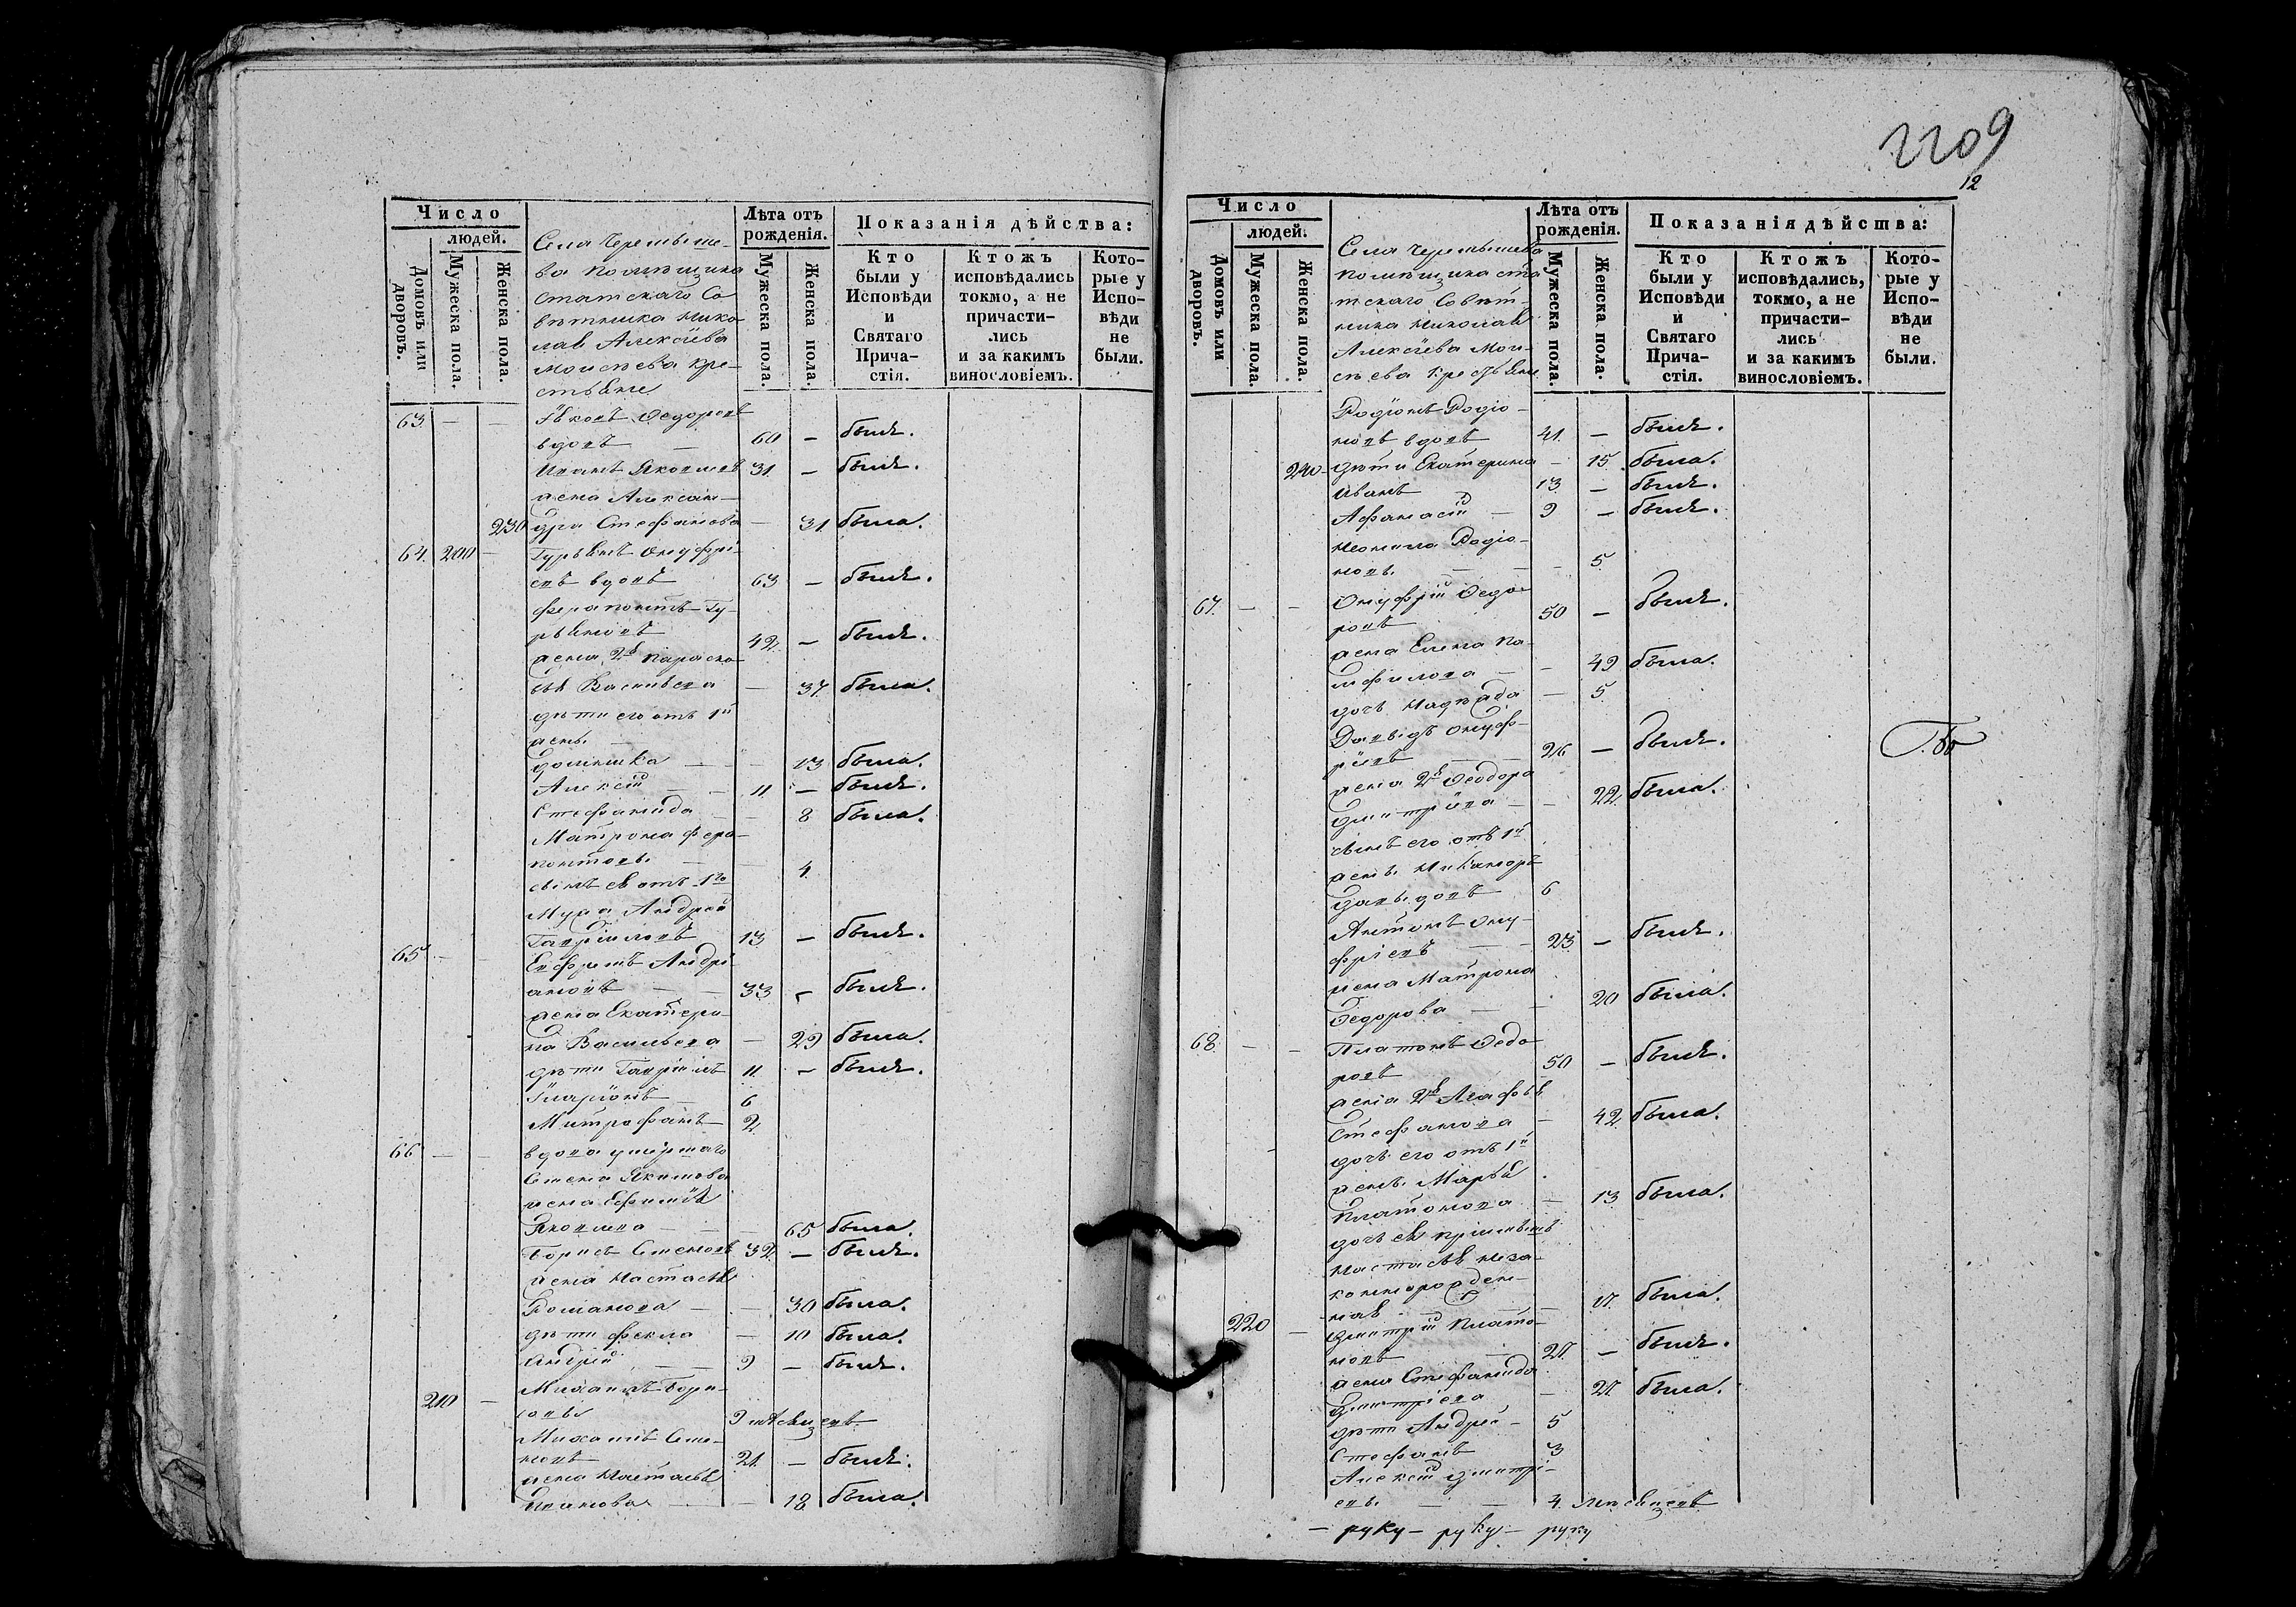 Число
людей.
Домовъ или дворовъ.
Мужеска пола.
Женска пола.
Села Чернышe-
ва помѣщика
статскаго Со
вѣтника Нико
лая Алексѣева
Моисѣева кре-
стьяне
Лѣта отъ
рожденія.
Мужеска пола.
Женска пола.
Показанія дѣйства:
Кто
были у
Исповѣди
и
Святаго
Прича-
стія.
Ктожъ
исповѣдались
токмо, а не
причасти-
лись
и за какимъ
винословіемъ.
Кото-
рые у
Испо-
вѣди
не
были.
63. — — Яковъ Ѳедоровъ
вдовъ — 60 — былъ.
Иванъ Яковлевъ 31. — былъ.
жена Алексан-
230 дра Стефанова — 31 была.
64. 200 — Гурьянъ Онуфрі-
евъ вдовъ 63 — былъ.
Ферапонтъ Гу-
рьяновъ 42. — былъ.
жена 2я Параско-
вья Васильева — 37. была.
дѣти его отъ 1й
жены
Домника — — 13 была.
Алексѣй — — 11. — былъ.
Стефанида — — 8 была.
Матрона Фера-
понтовы — — 4.
сынъ ея отъ 1го
мужа Андрей
Гавріиловъ 13 — былъ.
65 — — Евфремъ Андрі-
ановъ — — 33 — былъ.
жена Екатери-
на Васильева — 29 была.
дѣти Гавріилъ 11. — былъ.
Иларіонъ — 6
Митрофанъ — 2.
66 — — вдова умершаго
Семена Якимова
жена Ефимія
Яковлева — — 65 была.
Борисъ Семеновъ 32. — былъ.
жена Настасья
Романова — — 30 была.
дѣти Фекла — 10 была.
Андрей — — 9 — былъ.
210 — Михаилъ Бори-
совы 9 мѣсяцевъ.
Михаилъ Семе-
новъ 21. — былъ.
жена Настасья
Иванова — — 18 была.
2209
12
Число
людей.
Домовъ или дворовъ.
Мужеска пола.
Женска пола.
Села Чернышева
помѣщика ста
тскаго Совѣт-
ника Николая
Алексѣева Мои-
сѣева крестьяне
Лѣта отъ
рожденія.
Мужеска пола.
Женска пола.
Показанія дѣйства:
Кто
были у
Исповѣди
и
Святаго
Прича-
стія.
Ктожъ
исповѣдались,
токмо, а не
причасти-
лись
и за какимъ
винословіемъ.
Кото-
рые у
Испо-
вѣди
не
были.
Родіонъ Родіо-
новъ вдовъ 41. — былъ.
240 — дѣти Екатерина — 15. была.
Иванъ 13 — былъ.
Афанасій — 9 — былъ.
Неонила Родіо-
новы — — — 5.
67. — — Онуфрій Ѳедо-
ровъ 50 — былъ.
жена Елена Па-
мфилова — — 49 была.
дочь Надежда — 5.
Давыдъ Онуф-
ріевъ — 26 — былъ.
жена 2я Ѳеодора
Дмитріева — — 22. была.
сынъ его отъ 1й
жены Никаноръ
Давыдовъ 6
Антонъ Ону-
фріевъ — — 23. — былъ.
жена Матрона
Ѳедорова — — 20 была.
68. — — Платонъ Ѳедо-
ровъ 50 — былъ.
жена 2я Агафья
Стефанова — 42 была.
дочь его отъ 1й
жены Марья
Платонова — 13 была.
дочь ея
Настасья неза-
коннорожден-
ная — — — 17. была.
220 — Дмитрій Плато-
новъ — 27. — былъ.
жена Стефанида
Дмитріева — 27 была.
дѣти Андрей — 5
Стефанъ 3
Алексѣй Дмитрі-
евы — — 4. мѣсяцевъ
— руку — руку — руку